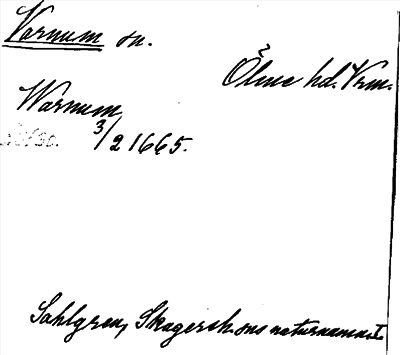 Varnum sn.
Ölme hd. Vrm.
Warnum
3/2 1665.
Sahlgren, Skagersh. sns naturnamn. I.